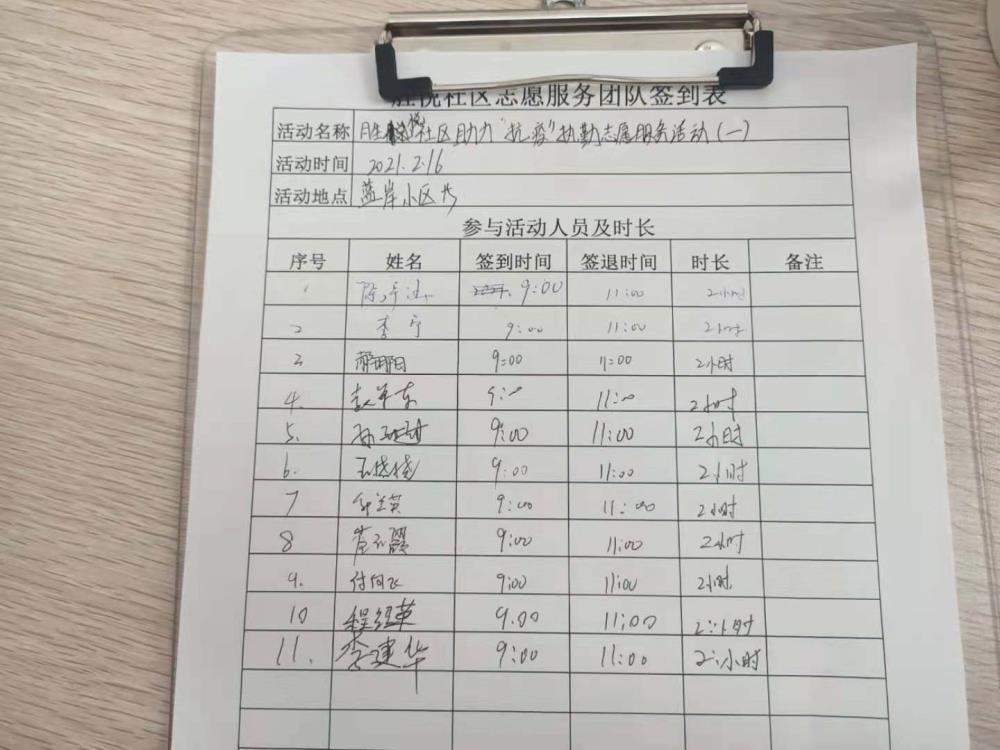 胜悦社区志愿服务团队签到表
活动名称 胜悦社区助力"抗疫"执勤志愿服务活动(一)
活动时间 2021.2.16
活动地点 蓝岸小区
参与活动人员及时长
序号 姓名 签到时间 签退时间 时长 备注
1 9:00 11:00 2小时
2 李宁 9:00 11:00 2小时
3 9:00 11:00 2小时
4. 赵军东 9:00 11:00 2小时
5. 9:00 11:00 2小时
6. 9:00 11:00 2小时
7 9:00 11:00 2小时
8 9:00 11:00 2小时
9. 付向飞 9:00 11:00 2小时
10 程经英 9.00 11:00 2小时
11. 李建华 9:00 11:00 2小时